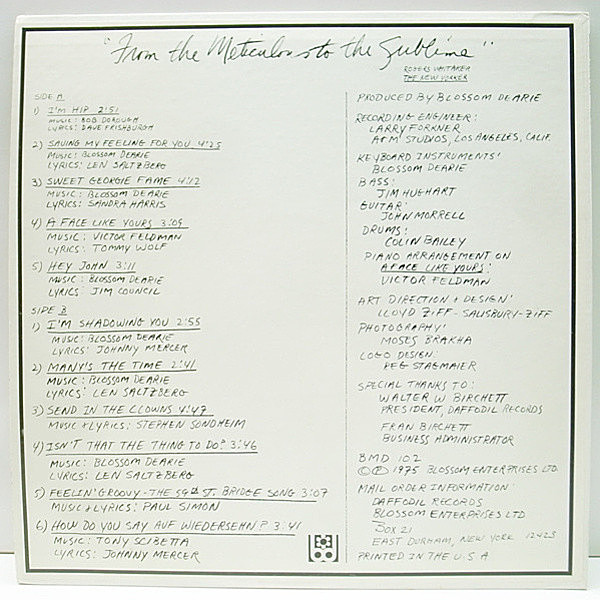 "From the Meticulous to the Sublime"
ROGERS WHITAKER
THE NEW YORKER
SIDE A
1) I'M HIP 2:51
MUSIC: BOB DOROUGH
LYRICS: DAVE FRISHBURGH
2) SAVING MY FEELING FOR YOU 4:25
MUSIC: BLOSSOM DEARIE
LYRICS: LEN SALTZBERG
3) SWEET GEORGIE FAME 4:12
MUSIC: BLOSSOM DEARIE
LYRICS: SANDRA HARRIS
4) A FACE LIKE YOURS 3:09
MUSIC: VICTOR FELDMAN
LYRICS: TOMMY WOLF
5) HEY JOHN 3:11
MUSIC: BLOSSOM DEARIE
LYRICS: JIM COUNCIL
SIDE B
1) I'M SHADOWING YOU 2:55
MUSIC: BLOSSOM DEARIE
LYRICS: JOHNNY MERCER
2) MANY'S THE TIME 2:41
MUSIC: BLOSSOM DEARIE
LYRICS: LEN SALTZBERG
3) SEND IN THE CLOWNS 4:47
MUSIC & LYRICS: STEPHEN SONDHEIM
4) ISN'T THAT THE THING TO DO? 3:46
MUSIC: BLOSSOM DEARIE
LYRICS: LEN SALTZBERG
5) FEELIN' GROOVY - THE 59th ST. BRIDGE SONG 3:07
MUSIC & LYRICS: PAUL SIMON
6) HOW DO YOU SAY AUF WIEDERSEHN? 3:41
MUSIC: TONY SCIBETTA
LYRICS: JOHNNY MERCER
PRODUCED BY BLOSSOM DEARIE
RECORDING ENGINEER:
LARRY FORKNER
A+M STUDIOS, LOS ANGELES, CALIF.
KEYBOARD INSTRUMENTS:
BLOSSOM DEARIE
BASS:
JIM HUGHART
GUITAR:
JOHN MORRELL
DRUMS:
COLIN BAILEY
PIANO ARRANGEMENT ON
A FACE LIKE YOURS:
VICTOR FELDMAN
ART DIRECTION + DESIGN:
LLOYD ZIFF - SALISBURY-ZIFF
PHOTOGRAPHY:
MOSES BRAKHA
LOGO DESIGN:
REG STAGMAIER
SPECIAL THANKS TO:
WALTER W BIRCHETT
PRESIDENT, DAFFODIL RECORDS
FRAN BIRCHETT
BUSINESS ADMINISTRATOR
BMD 102
©℗ 1975 BLOSSOM ENTERPRISES LTD.
MAIL ORDER INFORMATION:
DAFFODIL RECORDS
BLOSSOM ENTERPRISES LTD
BOX 21
EAST DURHAM, NEW YORK 12423
PRINTED IN THE U.S.A